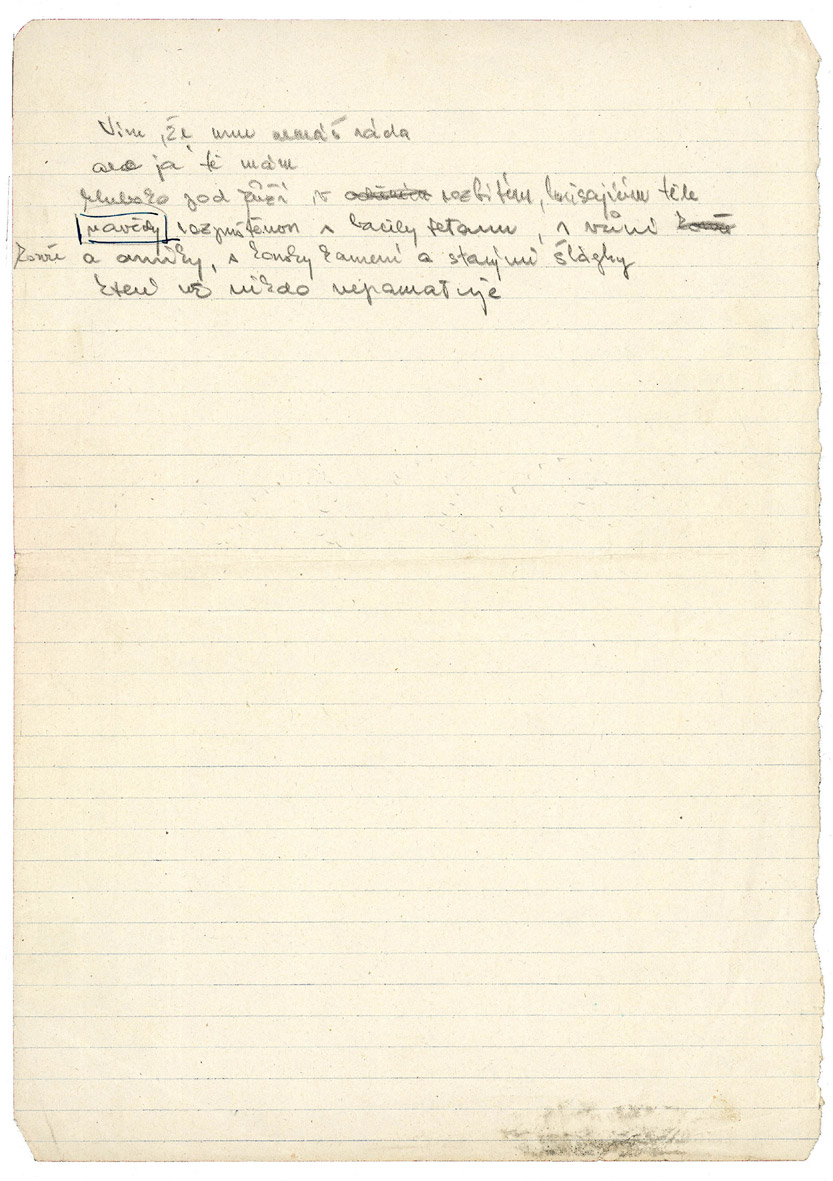 Vím, že mne nemáš ráda
ale já tě mám
hluboko pod kůží, v rozbitém, krvácejícím těle
navždy rozpuštěnou s bacily tetanu, s vůní
koňů a arniky, s kousky kamení a starými šlágry
které už nikdo nepamatuje